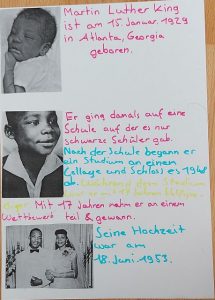 Martin Luther King
ist am 15. Januar 1929
in Atlanta, Georgia
geboren.
Er ging damals auf eine
Schule auf der es nur
schwarze Schüler gab.
Nach der Schule begann er
ein Studium an einem
Collage und Schloss es 1948
ab. Während dem Studium
war er mit 17 Jahren
Mit 17 Jahren nahm er an einem
Wettbewerb teil & gewann.
Seine Hochzeit
war am
18. Juni 1953.